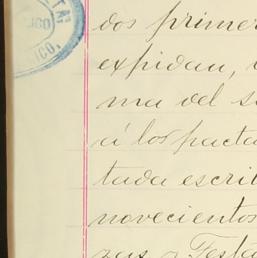 dos primer
expidan,
ma del s
á los pacta
tada escrit
novecientos